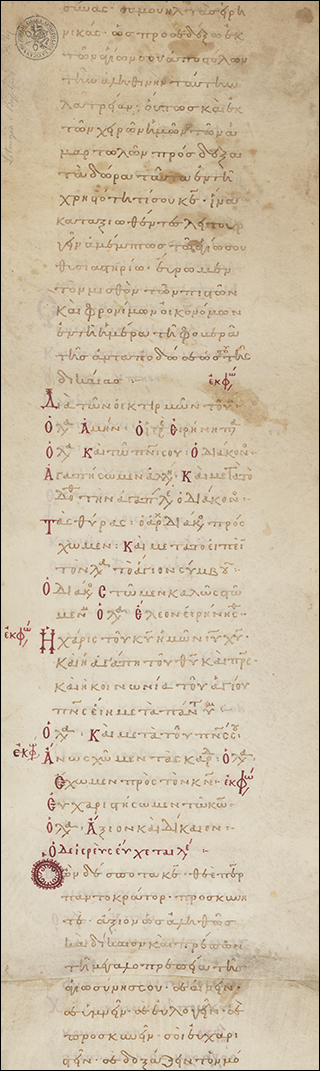 νικάς· ὡς προσεδέξω ἐκ
τῶν ἁγίων σου ἀποστόλων
τὴν ἀληθηνὴν ταύτην
λατρείαν· οὕτως καὶ ἐκ
τῶν χειρῶν ἡμῶν τῶν ἁ
μαρτωλῶν πρόσδεξαι
τὰ δῶρα ταῦτα ἐν τῇ
χρηστότητί σου κε· ἵνα
καταξιωθέντες λειτουρ
γεῖν ἀμέμπτως τῷ ἁγίω σου
θυσιαστηρίω· εὕρωμεν
τὸν μισθὸν τῶν πιστῶν
καὶ φρονίμων οἰκονόμων
ἐν τῇ ἡμέρα τῇ φοβερᾶ
τῆς ἀνταποδώσεως τῆς
δικαίας· ἐκφω
Διὰ τῶν οἰκτιρμῶν τοῦ·
Ὁ λα Ἀμήν· Ὁ Εἰρήνη π
Ὁ λα Καὶ τῶ πνι σου· Ὁ διακον·
Ἀγαπήσωμεν ἀλλ· Καὶ μετὰ τὸ
δο τὴν ἀγάπην ὁ διάκον·
Τὰς θύρας· ὁ διάκ πρόσ
χωμεν· Καὶ μετὰ τὸ εἰπεῖ
τὸν λα τὸ ἅγιον σύμβυ·
Ὁ διακ Στῶμεν καλῶς στῶ
μεν Ὁ λα Ἔλεον εἰρήνης·
ἐκφω Ἡ χάρις τοῦ κυ ἡμῶν ιυ χυ·
καὶ ἡ ἀγάπη τοῦ θυ καὶ πρς·
καὶ ἡ κοινωνία τοῦ ἁγίου
πνς εἴη μετὰ πάντ
Ὁ λα Καὶ μετὰ τοῦ πνς σ·
ἐκφ Ἄνω σχῶμεν τὰς καρ· Ὁ λα
Ἔχωμεν πρὸς τὸν κν· ἐκφω
Εὐχαριστήσωμεν τῶ κω·
Ὁ λα Ἄξιον καὶ δίκαιον·
Ὁ δὲ ἱερεὺς εὔχεται λε
Ὁ ὢν δέσποτα κε θε πηρ
παντοκράτορ· προσκυνη
τέ· ἄξιον ὡς ἀληθῶς
καὶ δίκαιον καὶ πρέπον
τῇ μεγαλοπρεπεία τῆς
ἁγιωσύνης σου· σὲ αἰνεῖν·
σὲ ὑμνεῖν· σὲ εὐλογεῖν· σὲ
προσκυνεῖν· σοὶ εὐχαρι
στεῖν· σὲ δοξάζειν τὸν μό